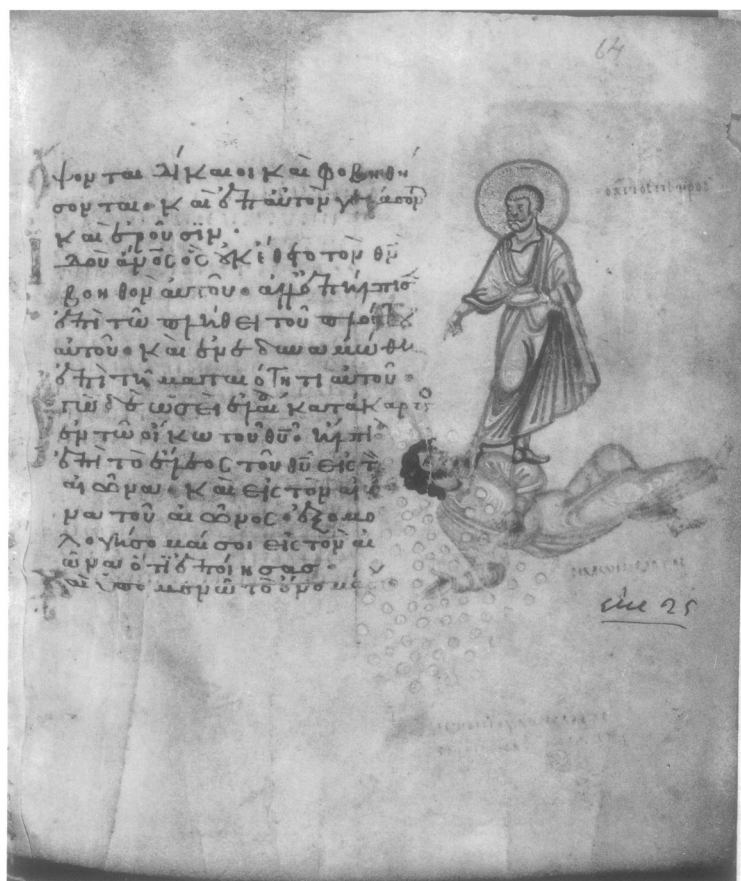 64
ψονται δίκαιοι καὶ φοβηθή
σονται· καὶ ἐπαὐτὸν γελάσον
καὶ ἐροῦσϊν·
δοὺ ἄν̅ο̅ς̅ ὃς οὐκ ἔθετο τὸν θ̅ν̅
βοηθὸν αὐτοῦ· ἀλλἐπήλπισ
ἐπὶ τῶ πλήθει τοῦ πλούτου
αὐτοῦ· καὶ ἐνεδυναμώθη
ἐπὶ τῆ ματαιότητι αὐτοῦ·
γὼ δὲ ὡσεὶ ἐλαία κατάκαρπ
ἐν τῶ οἴκω τοῦ θ̅υ̅· ἤλπι
ἐπὶ τὸ ἔλεος τοῦ θ̅υ̅ εἰς τ
αἰῶνα· καὶ εἰς τὸν αἰῶ
να τοῦ αἰῶνος· ἐξομο
λογήσομαί σοι εἰς τὸν αἰ
ῶνα ὅτϊ ἐποίησας·
καὶ ὑπομενῶ τὸ ὄνομά
25